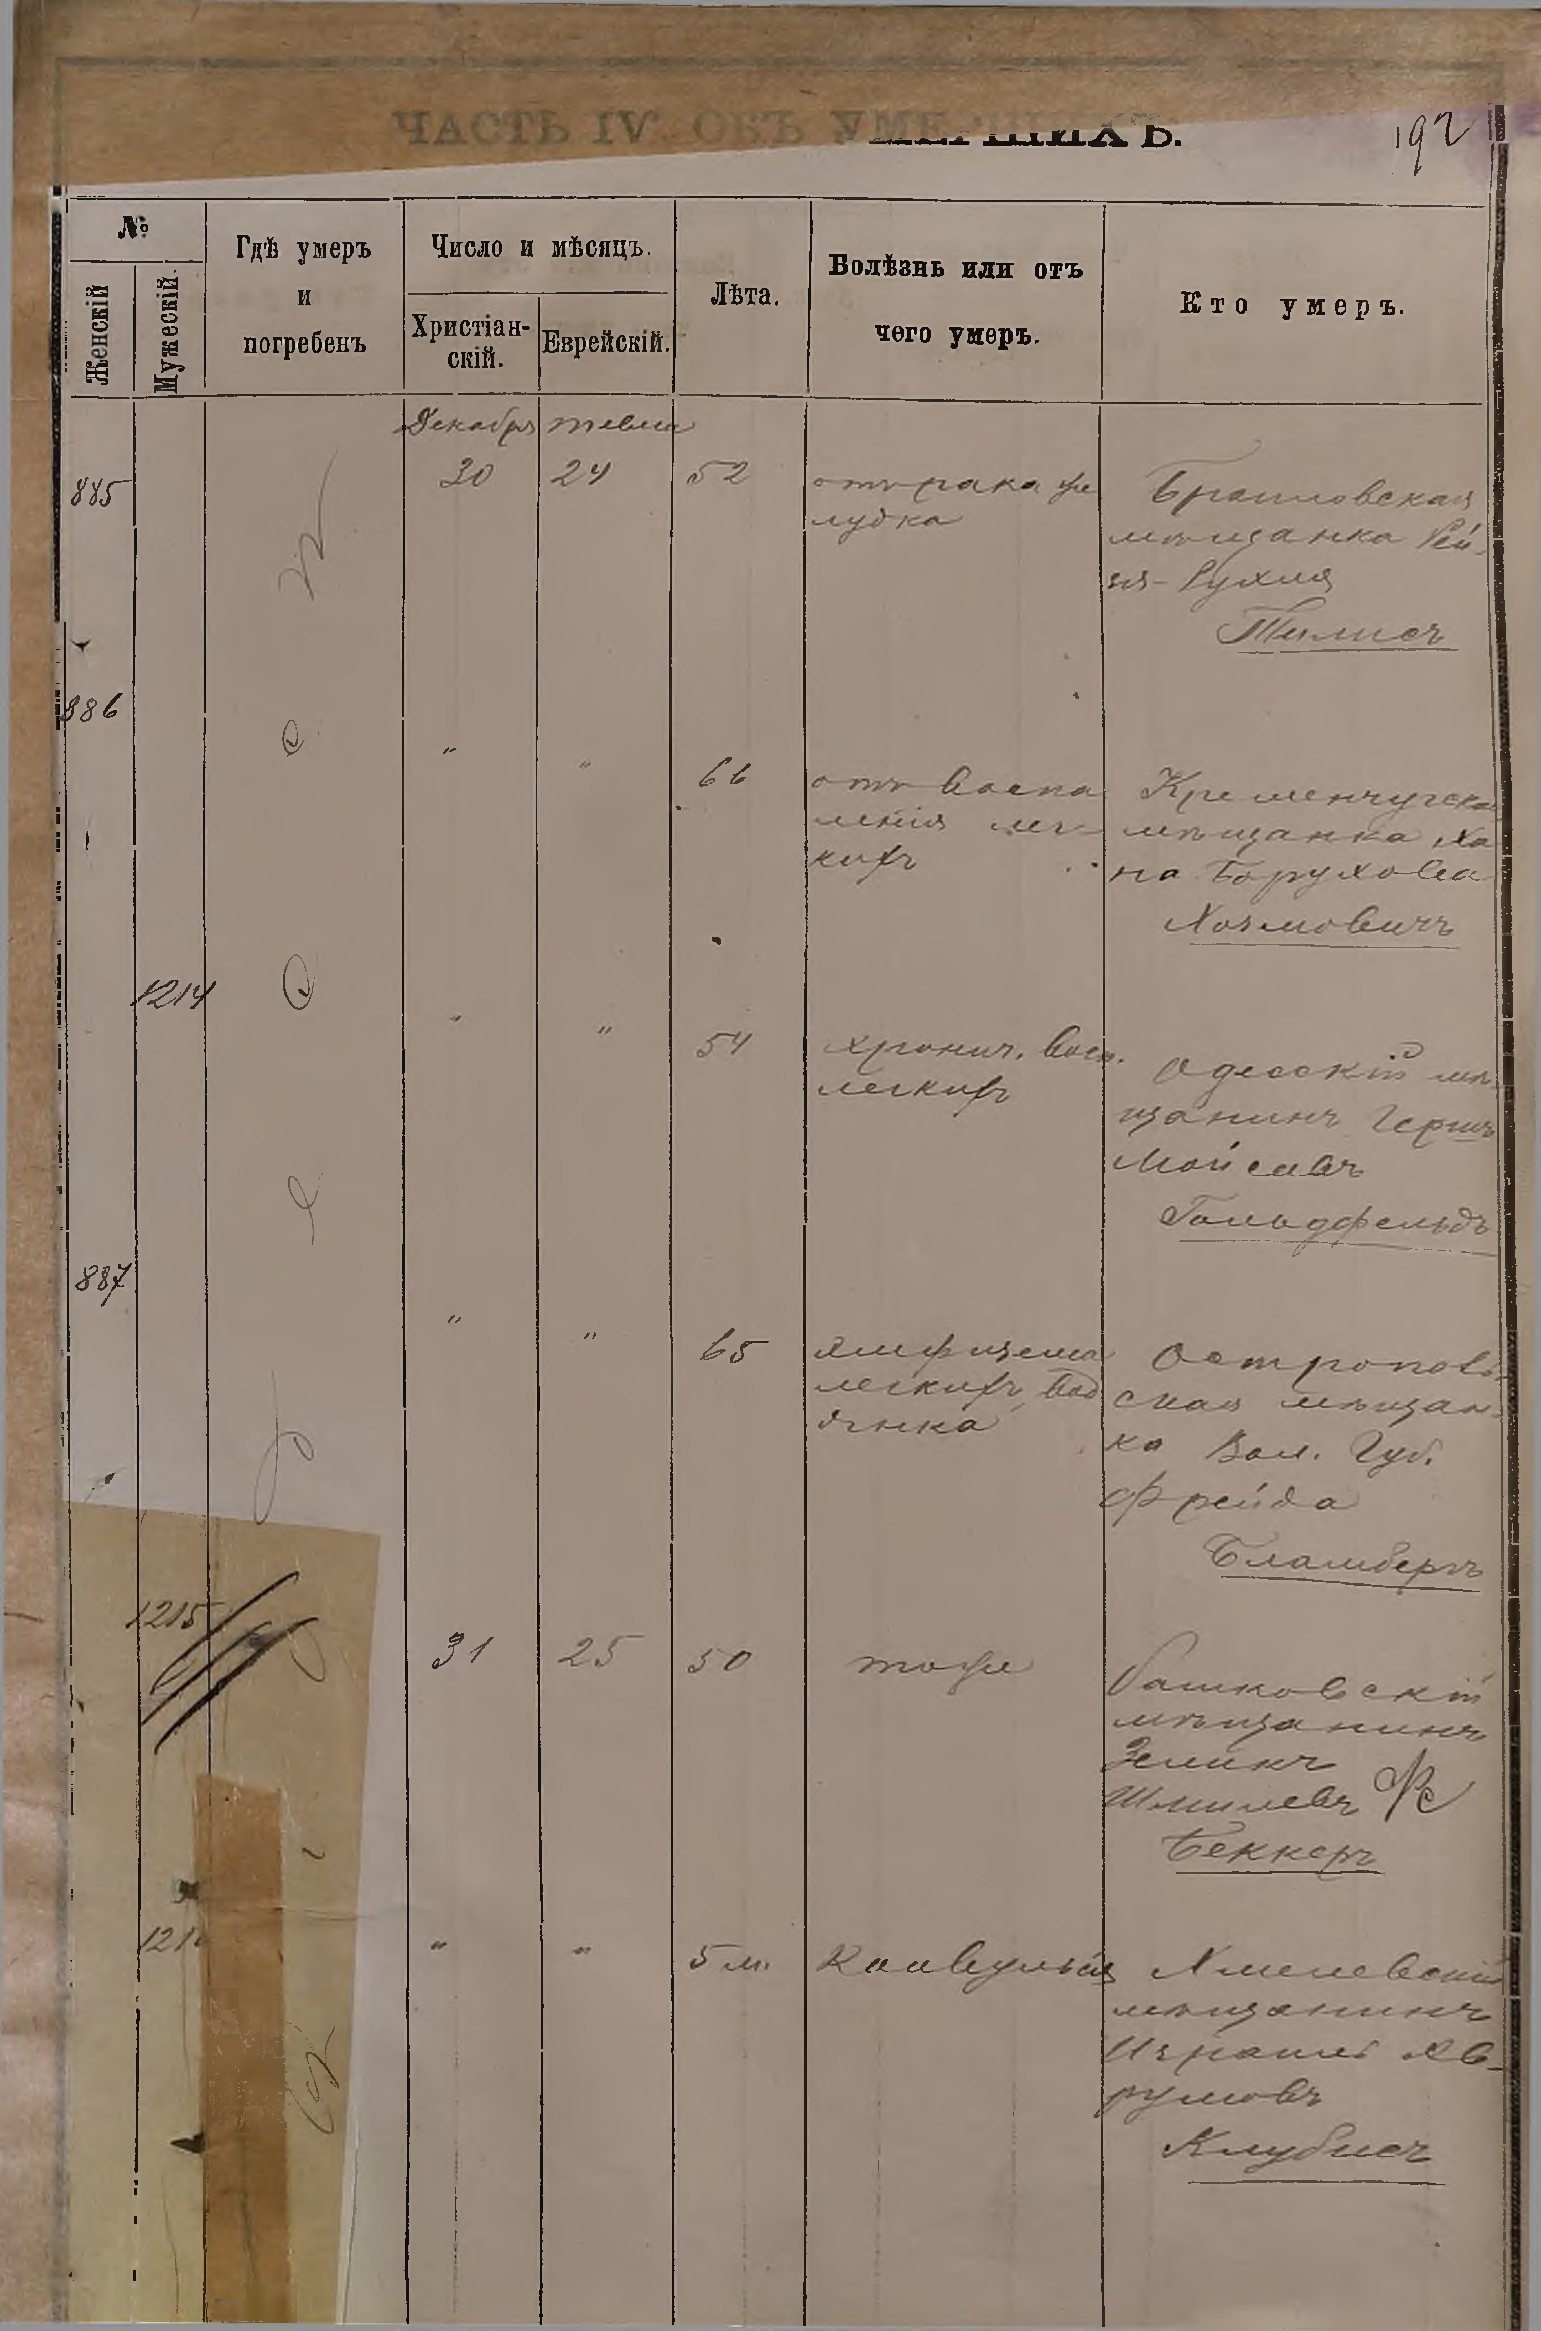 ЧАСТЬ IV. ОБЪ УМЕРШИХЪ.
192
№
Женскій
Мужескій.
Гдѣ умеръ
и
погребенъ
Число и мѣсяцъ.
Христіан-
скій.
Еврейскій.
Лѣта.
Болѣзнь или отъ
чего умеръ.
Кто умеръ.
Декабря
885
30
24
52
отъ рака же
лудка
Браиловская
мѣщанка Рей-
зя-Рухля
886
"
"
66
отъ воспа
ленія лег-
кихъ
Кременчугская
мѣщанка Ха
на Борухова
Хаимовичъ
1214
"
"
54
хронич. восп.
легкихъ
Одесскій мѣ-
щанинъ Гершъ
Мойсевъ
Гольдфельдъ
887
"
"
65
легкихъ, вод
янка
Острополь-
ская мѣщан-
ка Вол. Губ.
Фрейда
1215
31
25
50
тоже
мѣщанинъ
Шмилевъ
Беккеръ
"
"
5 м.
Хмелевскій
мѣщанинъ
Израиль Ав-
румовъ